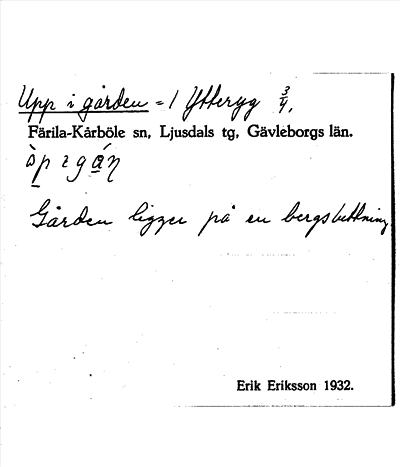 Upp i gården = 1 Ytteryg 3/4.
Färila-Kårböle sn, Ljusdals tg, Gävleborgs län.
Gården ligger på en bergsluttning
Erik Eriksson 1932.